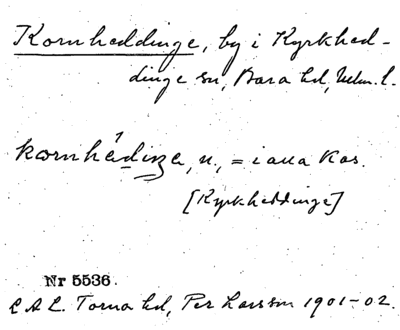 Kornheddinge, by i Kyrkhed-
dinge sn, Bara hd, Mlm. l.
kornhédinge, n, = i alla kas.
[Kyrkheddinge]
Nr 5536.
C A L. Torna hd, Per Larsson 1901-02.